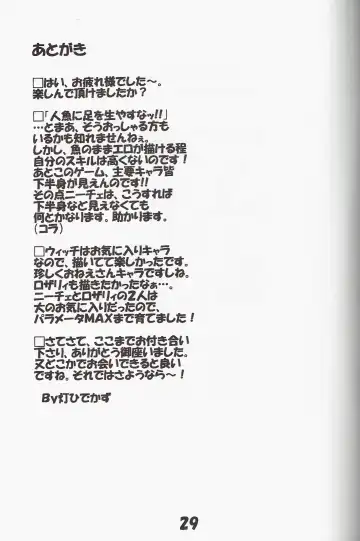 あとがき
□はい、お疲れ様でした〜。
楽しんで頂けましたか？
□「人魚に足を生やすなッ!!」
…とまあ、そうおっしゃる方も
いるかも知れませんねぇ。
しかし、魚のままエロが描ける程
自分のスキルは高くないのです！
あとこのゲーム、主要キャラ皆
下半身が見えんのです!!
その点ニーチェは、こうすれば
下半身など見えなくても
何とかなります。助かります。
(コラ)
□ウィッチはお気に入りキャラ
なので、描いてて楽しかったです。
珍しくおねえさんキャラですしね。
ロザリィも描きたかったなぁ…。
ニーチェとロザリィの2人は
大のお気に入りだったので、
パラメータMAXまで育てました！
□さてさて、ここまでお付き合い
下さり、ありがとう御座いました。
又どこかでお会いできると良い
ですね。それではさようなら〜！
By灯ひでかず
29